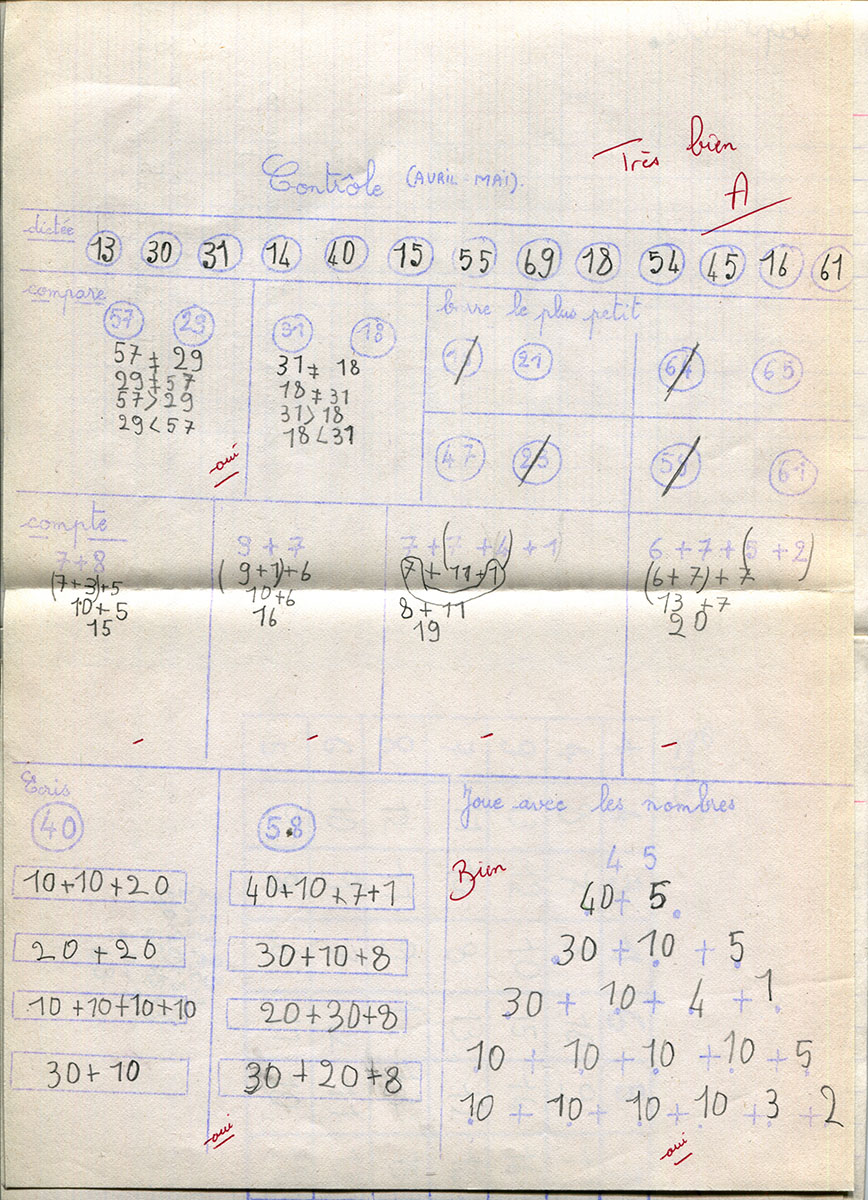 Très bien
Contrôle (AVRIL-MAI).
A
dictée
13 30 31 14 40 15 55 69 18 54 45 16 61
compare
57 29
57 ≠ 29
29 ≠ 57
57 > 29
29 < 57
oui
31 18
31 ≠ 18
18 ≠ 31
31 > 18
18 < 31
barre le plus petit
21
64 65
47 23
61
compte
7+8
(7+3)+5
10+5
15
9+7
(9+1)+6
10+6
16
7+(7+4)+1
7+11+1
8+11
19
6+7+(5+2)
(6+7)+7
13+7
20
Ecris
40
10+10+20
20+20
10+10+10+10
30+10
58
40+10+7+1
30+10+8
20+30+8
30+20+8
oui
Joue avec les nombres
Bien
45
40+5
30+10+5
30+10+4+1
10+10+10+10+5
10+10+10+10+3+2
oui